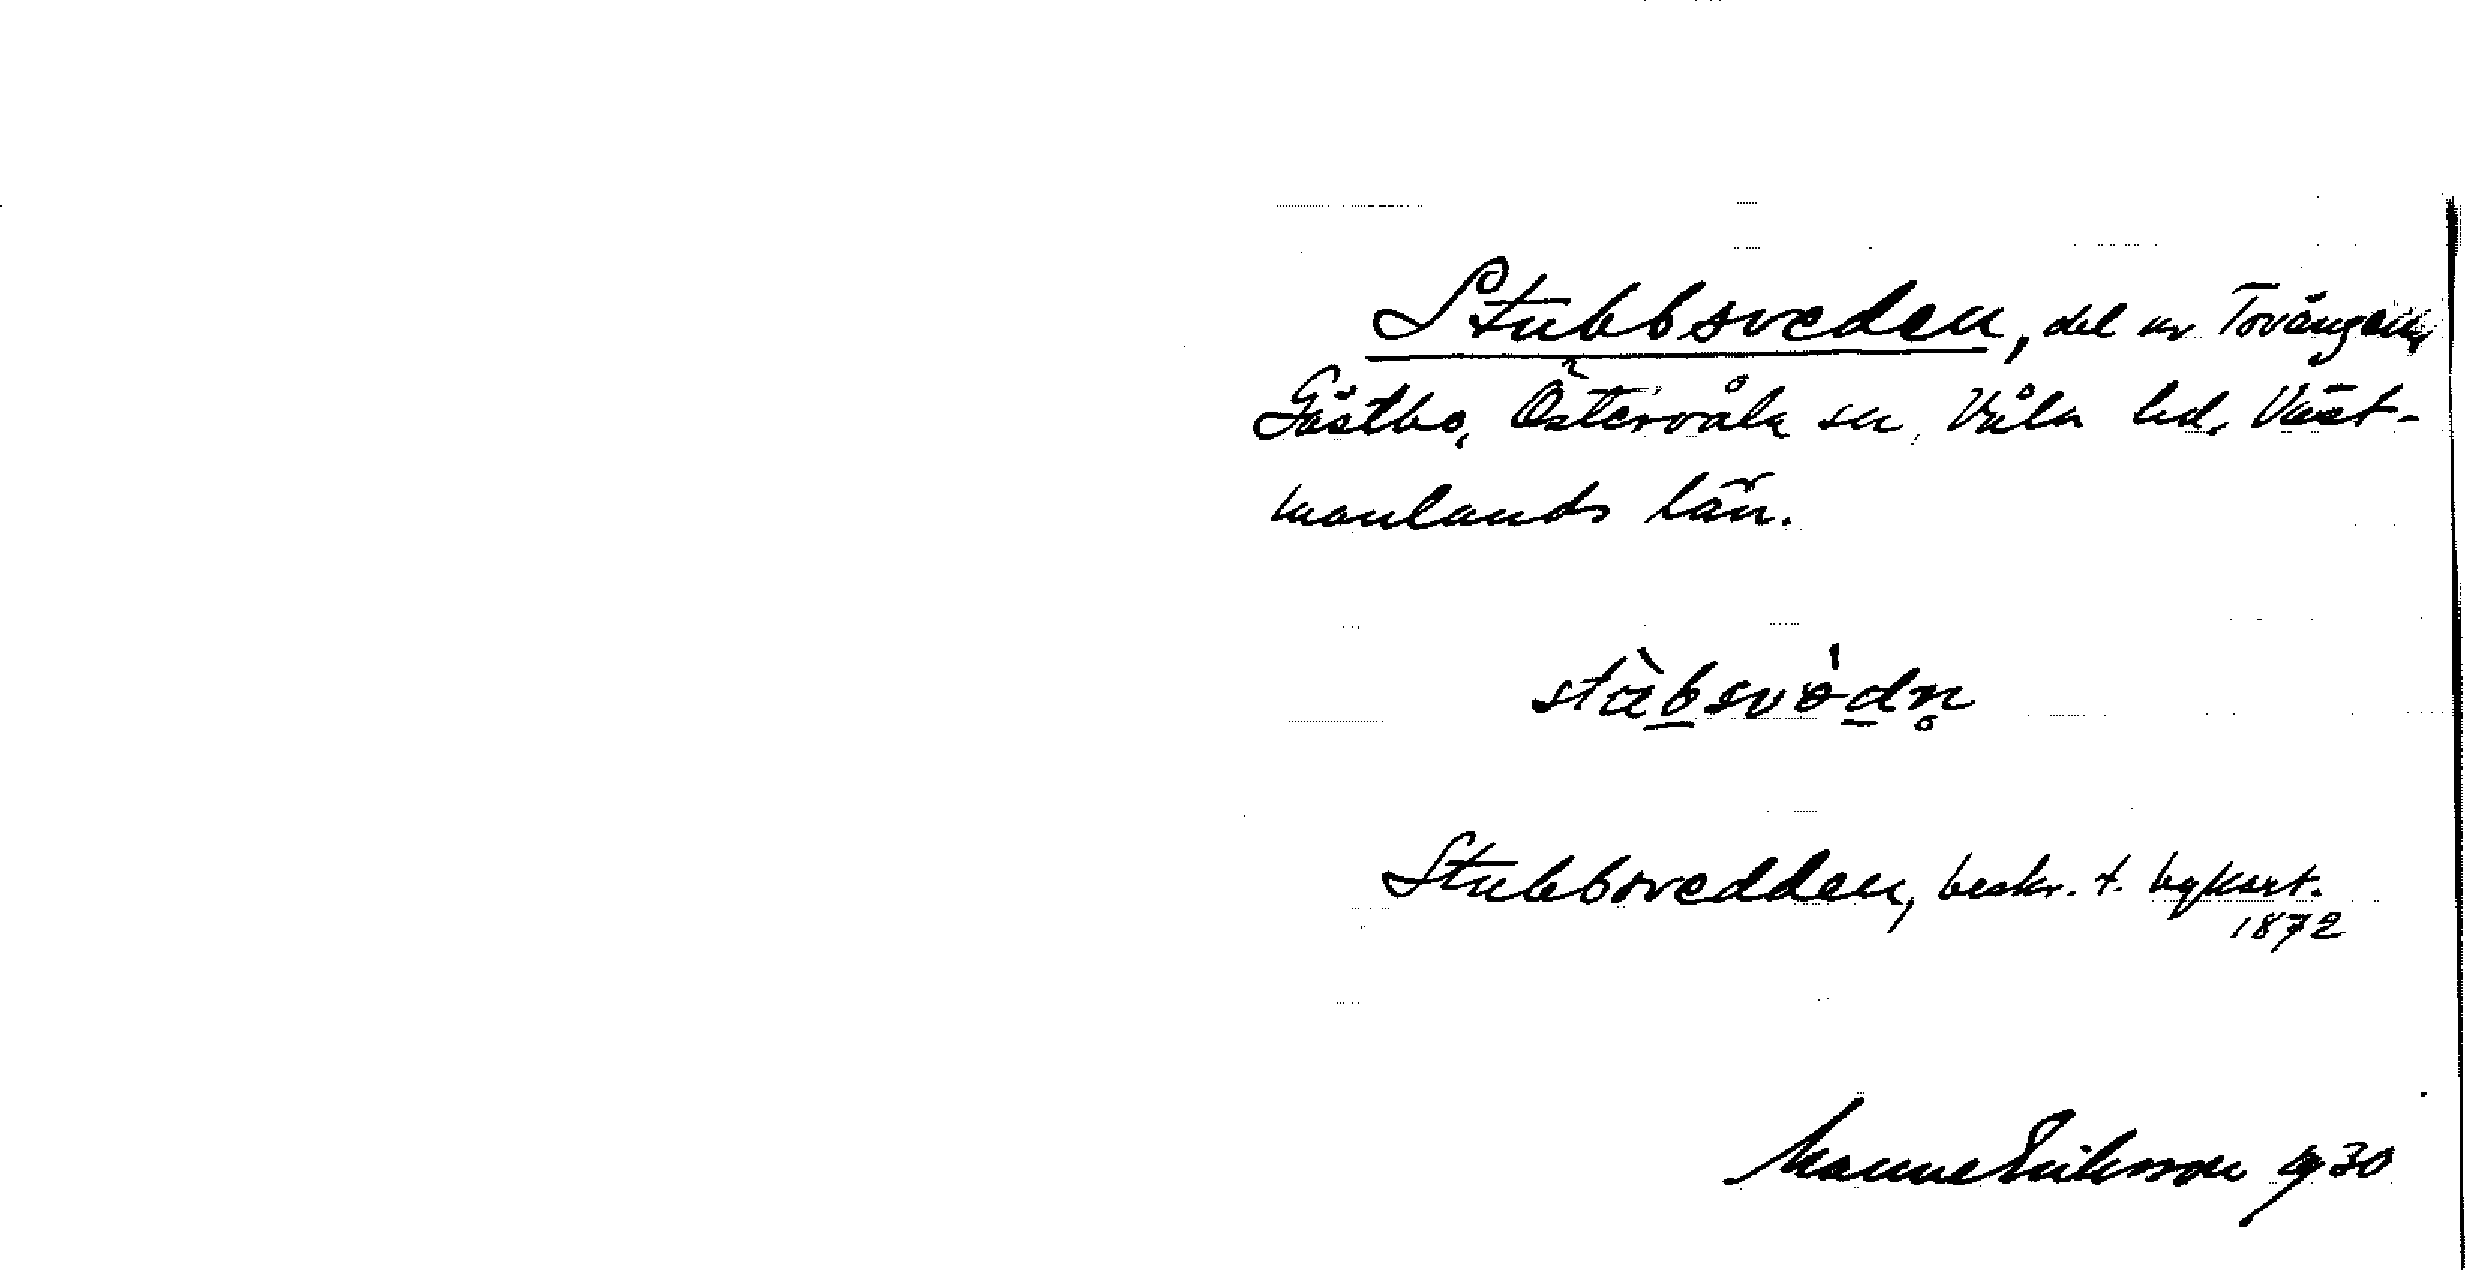 Stubbsveden, del av Torängen,
Gästbo, Östervåla sn, Våla hd, Väst-
manlands län.
Stubbsvedden, beskr. t. bykart.
1872
Manne Eriksson 1930